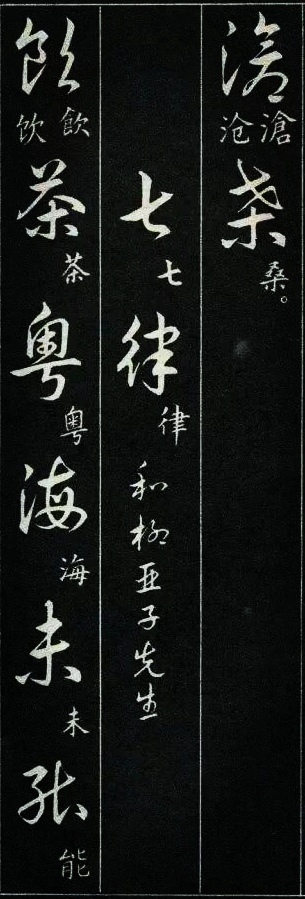 滄 沧滄
桑 桑。
七 七
律 律
和柳亚子先生
飲 饮飲
茶 茶
粵 粵
海 海
未 未
能 能